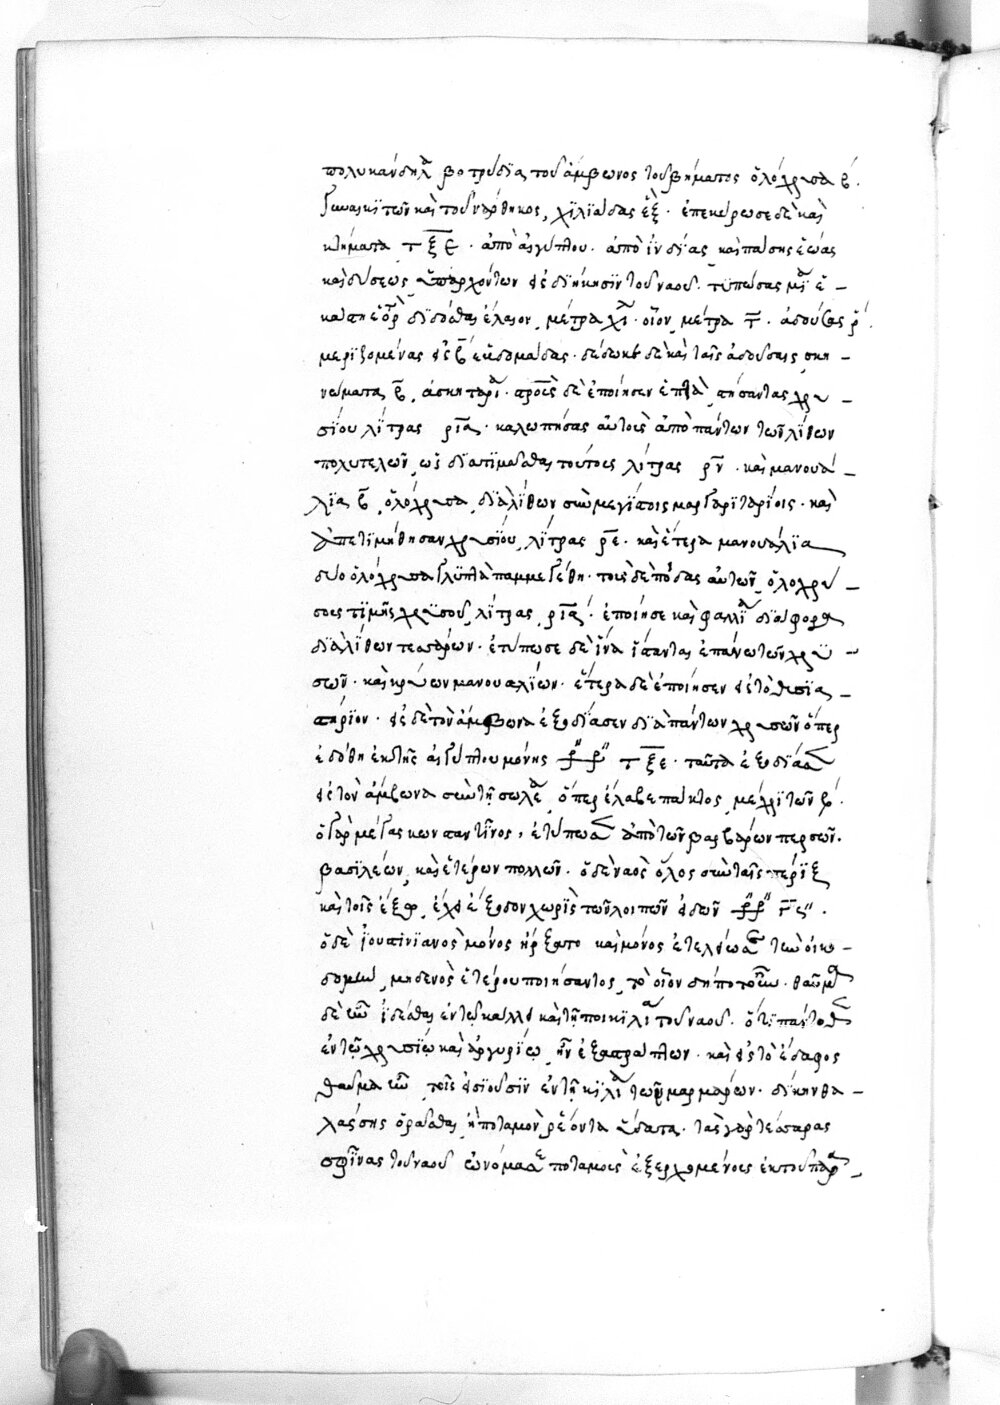 πολυκάνδηλα βοτρύδια τοῦ ἄμβωνος τοῦ βήματος ὁλόχρυσα
γυναικιτῶν καὶ τοῦ νάρθηκος, χϊλϊάδας ἓξ· ἐπεκύρωσε δὲ καὶ
κτήματα τξε· ἀπὸ αἰγύπτου· ἀπὸ ἰνδίας καὶ πάσης ἑώας
καὶ δύσεως ὑπαρχόντων εἰς διήκησϊν τοῦ ναοῦ· τϋπώσας μϊᾶ ἑ-
κάστη ἑορτ δίδοσθαι ἔλαιον μέτρα χίλ· οἶνον μέτρα τ·
μεριζομένας εἰς ἑβδομάδας· δέδωκε δὲ καὶ ταῖς ἀδούσαις σκη-
νώματα ἀσκητάρι· σταυροὺς δὲ ἐποίησεν ἑπτὰ στήσαντας χρυ-
σίου λίτρας ρια· καλωπήσας αὐτοὺς ἀπὸ πάντων τῶν λίθων
πολυτελῶν ὡς διατιμᾶσθαι τούτους λίτρας ρν· καὶ μανουά-
λϊα ὁλόχρυσα, διαλίθων σὺν μεγίστοις μαργαρϊταρίοις· καὶ
ἀπετιμήθησαν χρυσϊου λίτρας ρε· καὶ ἕτερα μανουάλϊα
δύο ὁλόχρυσα γλϋπτὰ παμμεγέθη· τοὺς δὲ πόδας αὐτῶν ὁλοχρύ-
σους τϊμῆς χρυσίου λίτρας ρια· ἐποίησε καὶ φαλλί διάφορα
διαλίθων τεσσάρων· ἐτύπωσε δὲ ἵνα ἵστανται ἐπάνω τῶν χρυ-
σῶν· καὶ κρύων μανουαλίων· ἕτερα δὲ ἐποίησεν εἰς τὸ θυσϊα-
στήριον· εἰς δὲ τὸν ἄμβωνα ἐξωδίασεν διὰ πάντων χρυσῶν ὅπερ
ἐδόθη ἐκ τῆς αἰγύπτου μόνης τξε· ταῦτα ἐξωδίασ
εἰς τὸν ἄμβωνα σὺν τῇ σωλέα ὅπερ ἔλαβε πάκτος μέχρι τῶν
ὁ γὰρ μέγας κωνσταντῖνος, ἐτύπωσ ἀπὸ τῶν βαρβάρων περσῶν·
βασϊλέων καὶ ἑτέρων πολλῶν· ὁ δὲ ναὸς ὅλος σὺν ταῖς πέριξ
καὶ τοῖς ἔξω ἔχει ἔξοδον χωρὶς τῶν λοιπῶν εἰδῶν
ὁ δὲ ἰουστϊνϊανὸς μόνος ἤρξατο καὶ μόνος ἐτελείωσ τὴν οἰκο-
δομὴν μηδενὸς ἑτέρου ποιήσαντος τὸ οἷον δήποτε θαῦμα
δὲ ἦν ἰδέσθαι ἐν τῷ κάλλει καὶ τῇ ποικϊλία τοῦ ναοῦ· ὅτϊ πάντοθ
ἔν τε χρυσϊῳ καὶ ἀργυρίῳ ἦν ἐξαστράπτων· καὶ εἰς τὸ ἔδαφος
θαῦμα ἦν τοῖς εἰσϊοῦσϊν ἐν τῇ ποικϊλία τῶν μαρμάρων· δίκην θα-
λάσσης ὁρᾶσθαι ἢ ποταμὸν ῥέοντα ὕδατα· τὰς γὰρ τέσσαρας
σφϊνας τοῦ ναοῦ ὠνόμασ ποταμοὺς ἐξερχομένους ἐκ τοῦ παρ-